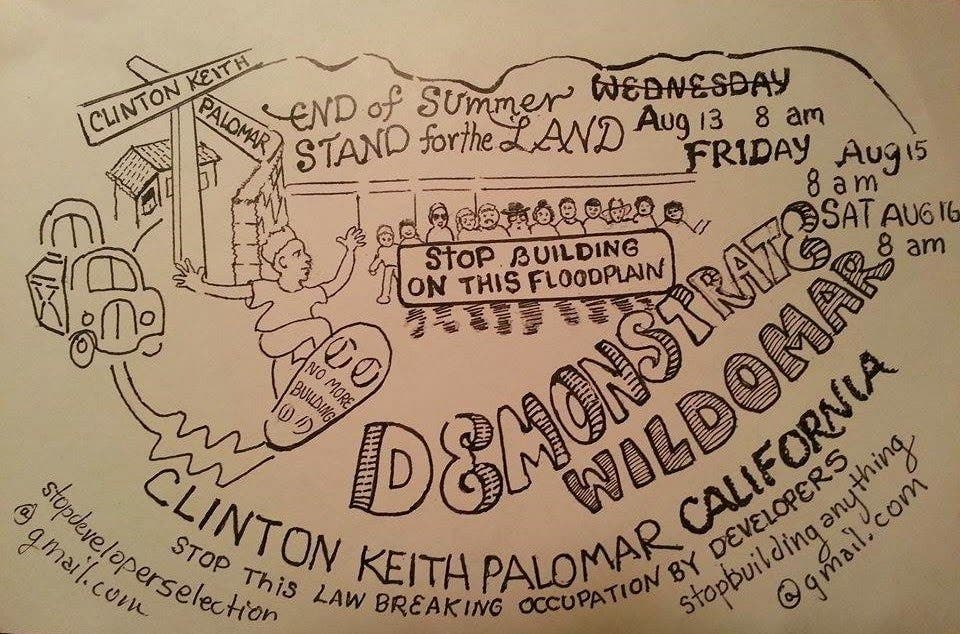 CLINTON KEITH
PALOMAR
END of SUMMER
STAND for the LAND
WEDNESDAY
Aug 13 8 am
FRIDAY Aug 15
8 am
SAT AUG 16
8 am
STOP BUILDING
ON THIS FLOODPLAIN
NO MORE
BUILDING
DEMONSTRATE
WILDOMAR
CLINTON KEITH PALOMAR CALIFORNIA
STOP THIS LAW BREAKING OCCUPATION BY DEVELOPERS
stopdeveloperselection
@gmail.com
stopbuildinganything
@gmail.com